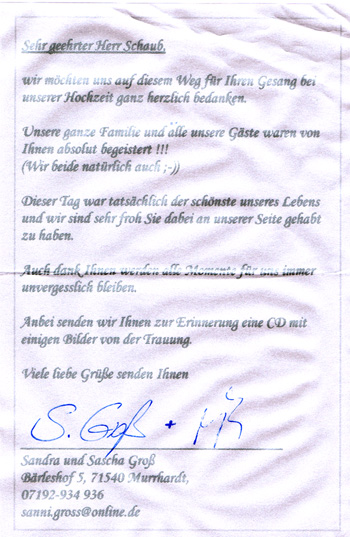 Sehr geehrter Herr Schaub,
wir möchten uns auf diesem Weg für Ihren Gesang bei
unserer Hochzeit ganz herzlich bedanken.
Unsere ganze Familie und alle unsere Gäste waren von
Ihnen absolut begeistert !!!
(Wir beide natürlich auch ;-))
Dieser Tag war tatsächlich der schönste unseres Lebens
und wir sind sehr froh Sie dabei an unserer Seite gehabt
zu haben.
Auch dank Ihnen werden alle Momente für uns immer
unvergesslich bleiben.
Anbei senden wir Ihnen zur Erinnerung eine CD mit
einigen Bilder von der Trauung.
Viele liebe Grüße senden Ihnen
S. Groß +
Sandra und Sascha Groß
Bärleshof 5, 71540 Murrhardt,
07192-934 936
sanni.gross@online.de